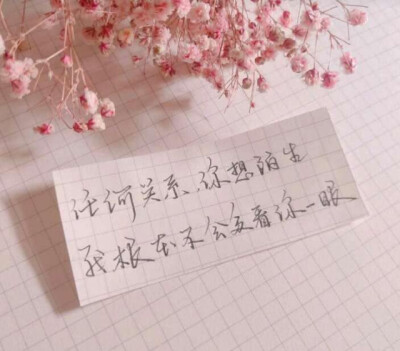 任何关系、你想陌生
我根本不会多看你一眼